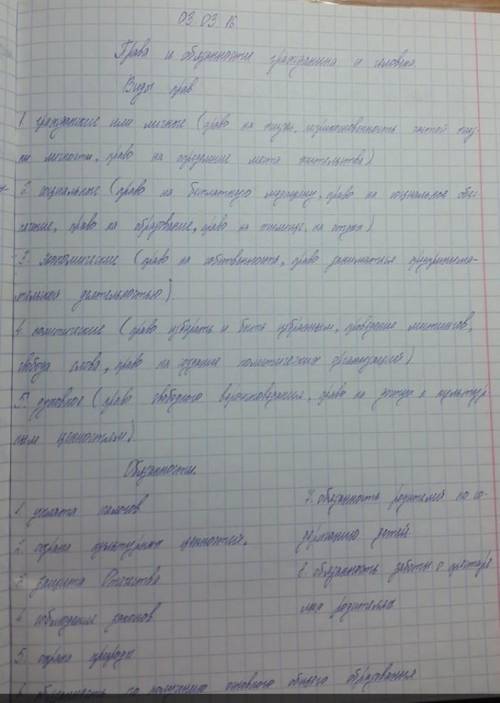 03 03 16
Права и обязанности гражданина и человека
Виды прав
1. гражданские или личные (право на жизнь, неприкосновенность частной жиз-
ни личности, право на определение места жительства)
2. социальные (право на бесплатную медицину, право на социальное обес-
печение, право на образование, право на жилище, на отдых)
3. экономические (право на собственность, право заниматься предпринима-
тельной деятельностью).
4. политические (право избирать и быть избранным, проведение митингов,
свобода слова, право на создание политических организаций)
5. духовное (право свободного вероисповедания, право на доступ к культур
ным ценностям)
Обязанности
1. уплата налогов
2. охрана культурных ценностей.
3. защита Отечества
4. соблюдение законов
5. охрана природы
6. обязанность по получению основного общего образования
7. обязанность родителей по со-
держанию детей
8. обязанность заботы о престаре
лых родителях